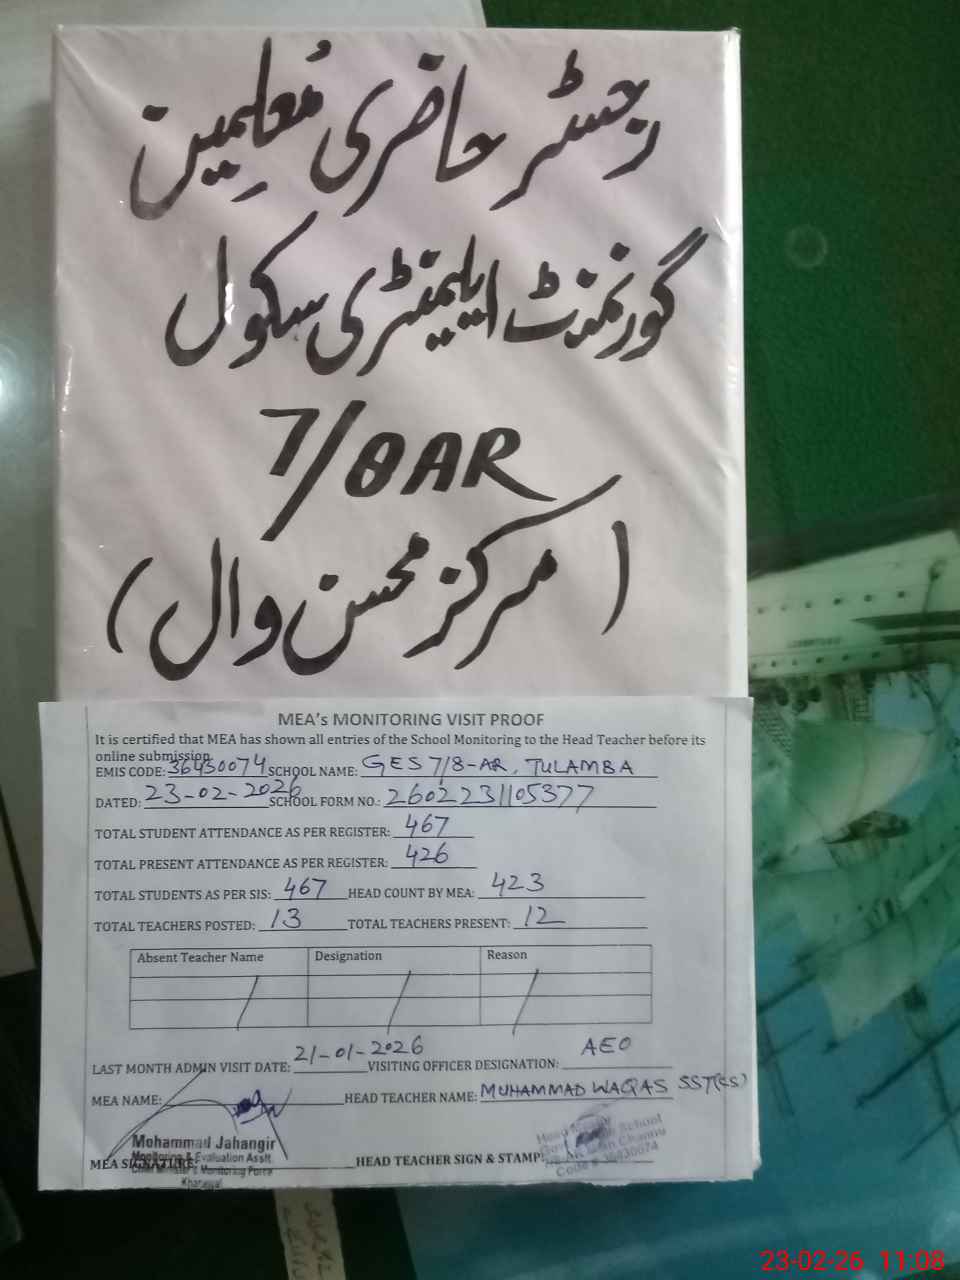 رجسٹر حاضری مُعلمِین
گورنمنٹ ایلیمنٹری سکول
7/8AR
(مرکز محسن وال)
MEA's MONITORING VISIT PROOF
It is certified that MEA has shown all entries of the School Monitoring to the Head Teacher before its
online submission.
EMIS CODE: 36430074 SCHOOL NAME: GES 7/8-AR, TULAMBA
DATED: 23-02-2026 SCHOOL FORM NO.: 2602231105377
TOTAL STUDENT ATTENDANCE AS PER REGISTER: 467
TOTAL PRESENT ATTENDANCE AS PER REGISTER: 426
TOTAL STUDENTS AS PER SIS: 467 HEAD COUNT BY MEA: 423
TOTAL TEACHERS POSTED: 13 TOTAL TEACHERS PRESENT: 12
Absent Teacher Name Designation Reason
LAST MONTH ADMIN VISIT DATE: 21-01-2026 VISITING OFFICER DESIGNATION: AEO
MEA NAME: HEAD TEACHER NAME: MUHAMMAD WAQAS SST(CS)
Mohammad Jahangir
Monitoring & Evaluation Asstt.
MEA SIGNATURE: HEAD TEACHER SIGN & STAMP:
Chief Minister's Monitoring Force
Khanewal
Head Master
School
Mian Channu
Code # 36430074
23-02-26 11:08